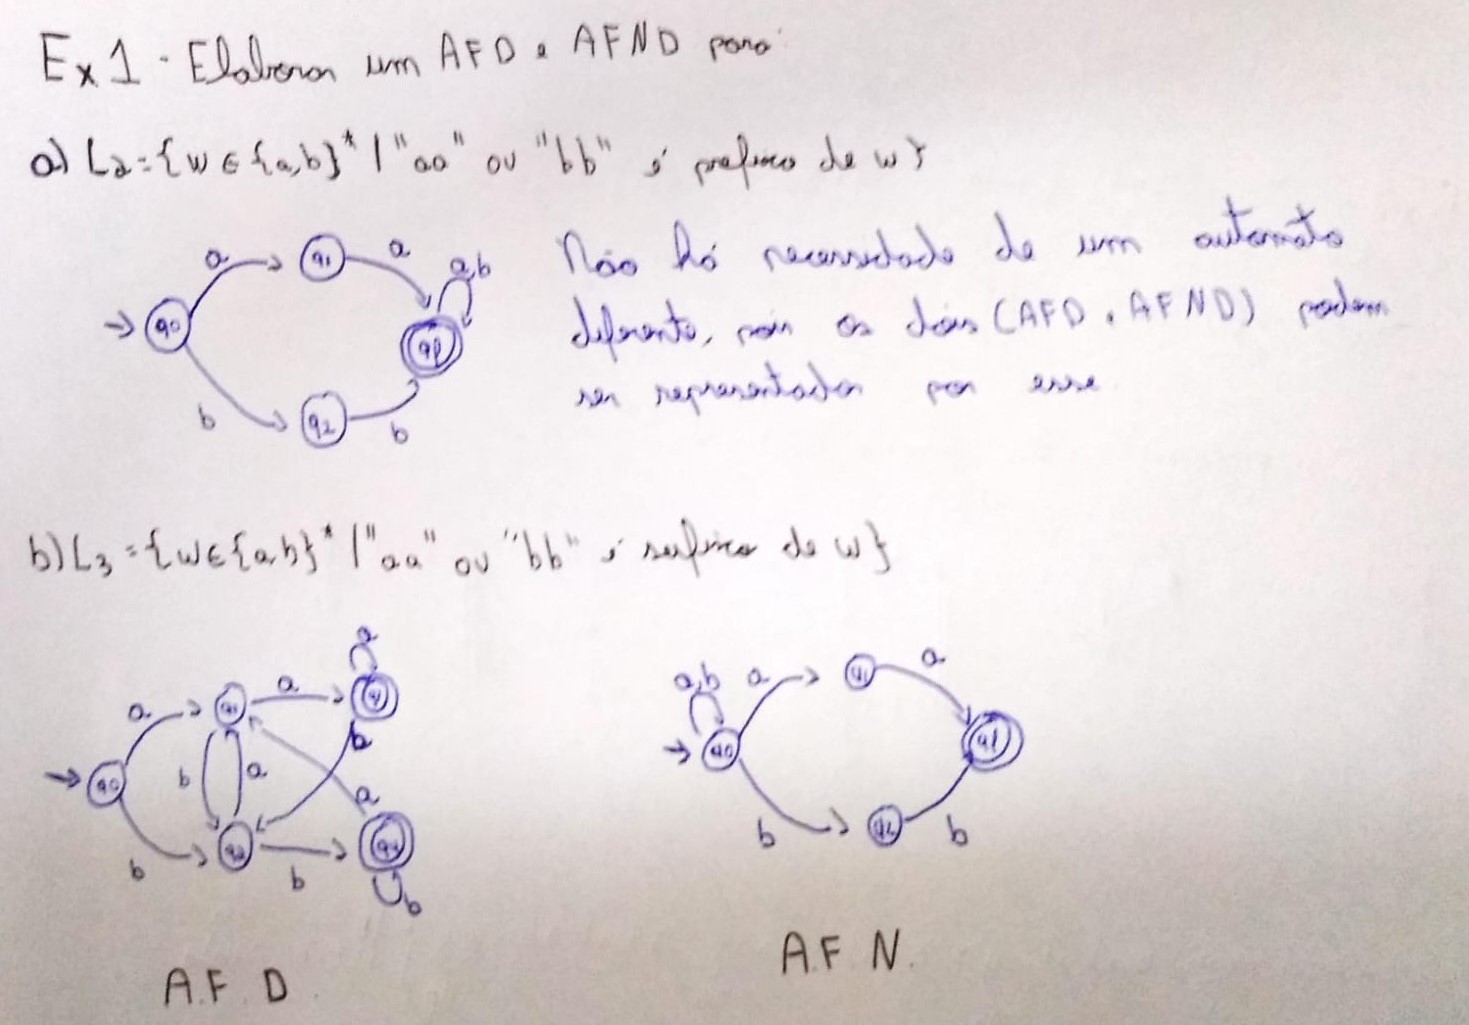 Ex 1 - Elaborar um AFD e AFND para:
a) L2 = {w ∈ {a,b}* | "aa" ou "bb" é prefixo de w}
a q1 a a,b
q0 qf
b q2 b
Não há necessidade de um automato
diferente, pois os dois (AFD e AFND) podem
ser representados por esse
b) L3 = {w ∈ {a,b}* | "aa" ou "bb" é sufixo de w}
a
a q1 a
b a b
q0 a
q2
b b b
A.F.D.
a,b a q1 a
q0 qf
b q2 b
A.F.N.